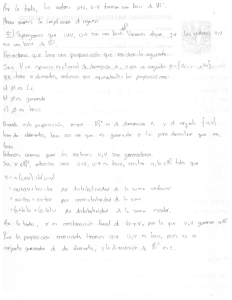 Por lo tanto, los vectores u+v, u-v forman una base de ℝ².
Ahora veamos la implicación de regreso
⇐] Supongamos que u+v, u-v es una base. Veamos ahora que los vectores u,v
es una base de ℝ².
Recordemos que hay una proposición que nos dice lo siguiente:
Sea V un espacio vectorial de dimensión n, y sea un conjunto β={v₁, ..., vₙ}
de n elementos, entonces son equivalentes las proposiciones:
a) β es l.i.
b) β es generador
c) β es base.
Usando esta proposición, como ℝ² es de dimensión 2, y el conjunto {u,v}
tiene dos elementos, basta ver que es generador o l.i. para demostrar que es
base.
Entonces veamos que los vectores u,v son generadores.
Sea x∈ℝ², entonces como u+v, u-v es base, existen a,b∈ℝ tales que
x = a(u+v)+b(u-v)
= au+av+bu-bv por distributividad de la suma vectorial
= au+bu+av-bv por conmutatividad de la suma
= (a+b)u+(a-b)v por distributividad de la suma escalar.
Por lo tanto, x es combinación lineal de u y v, por lo que u,v generan a ℝ²
Por la proposición enunciada tenemos que u,v es base, pues es un
conjunto generador de dos elementos, y la dimensión de ℝ² es 2.